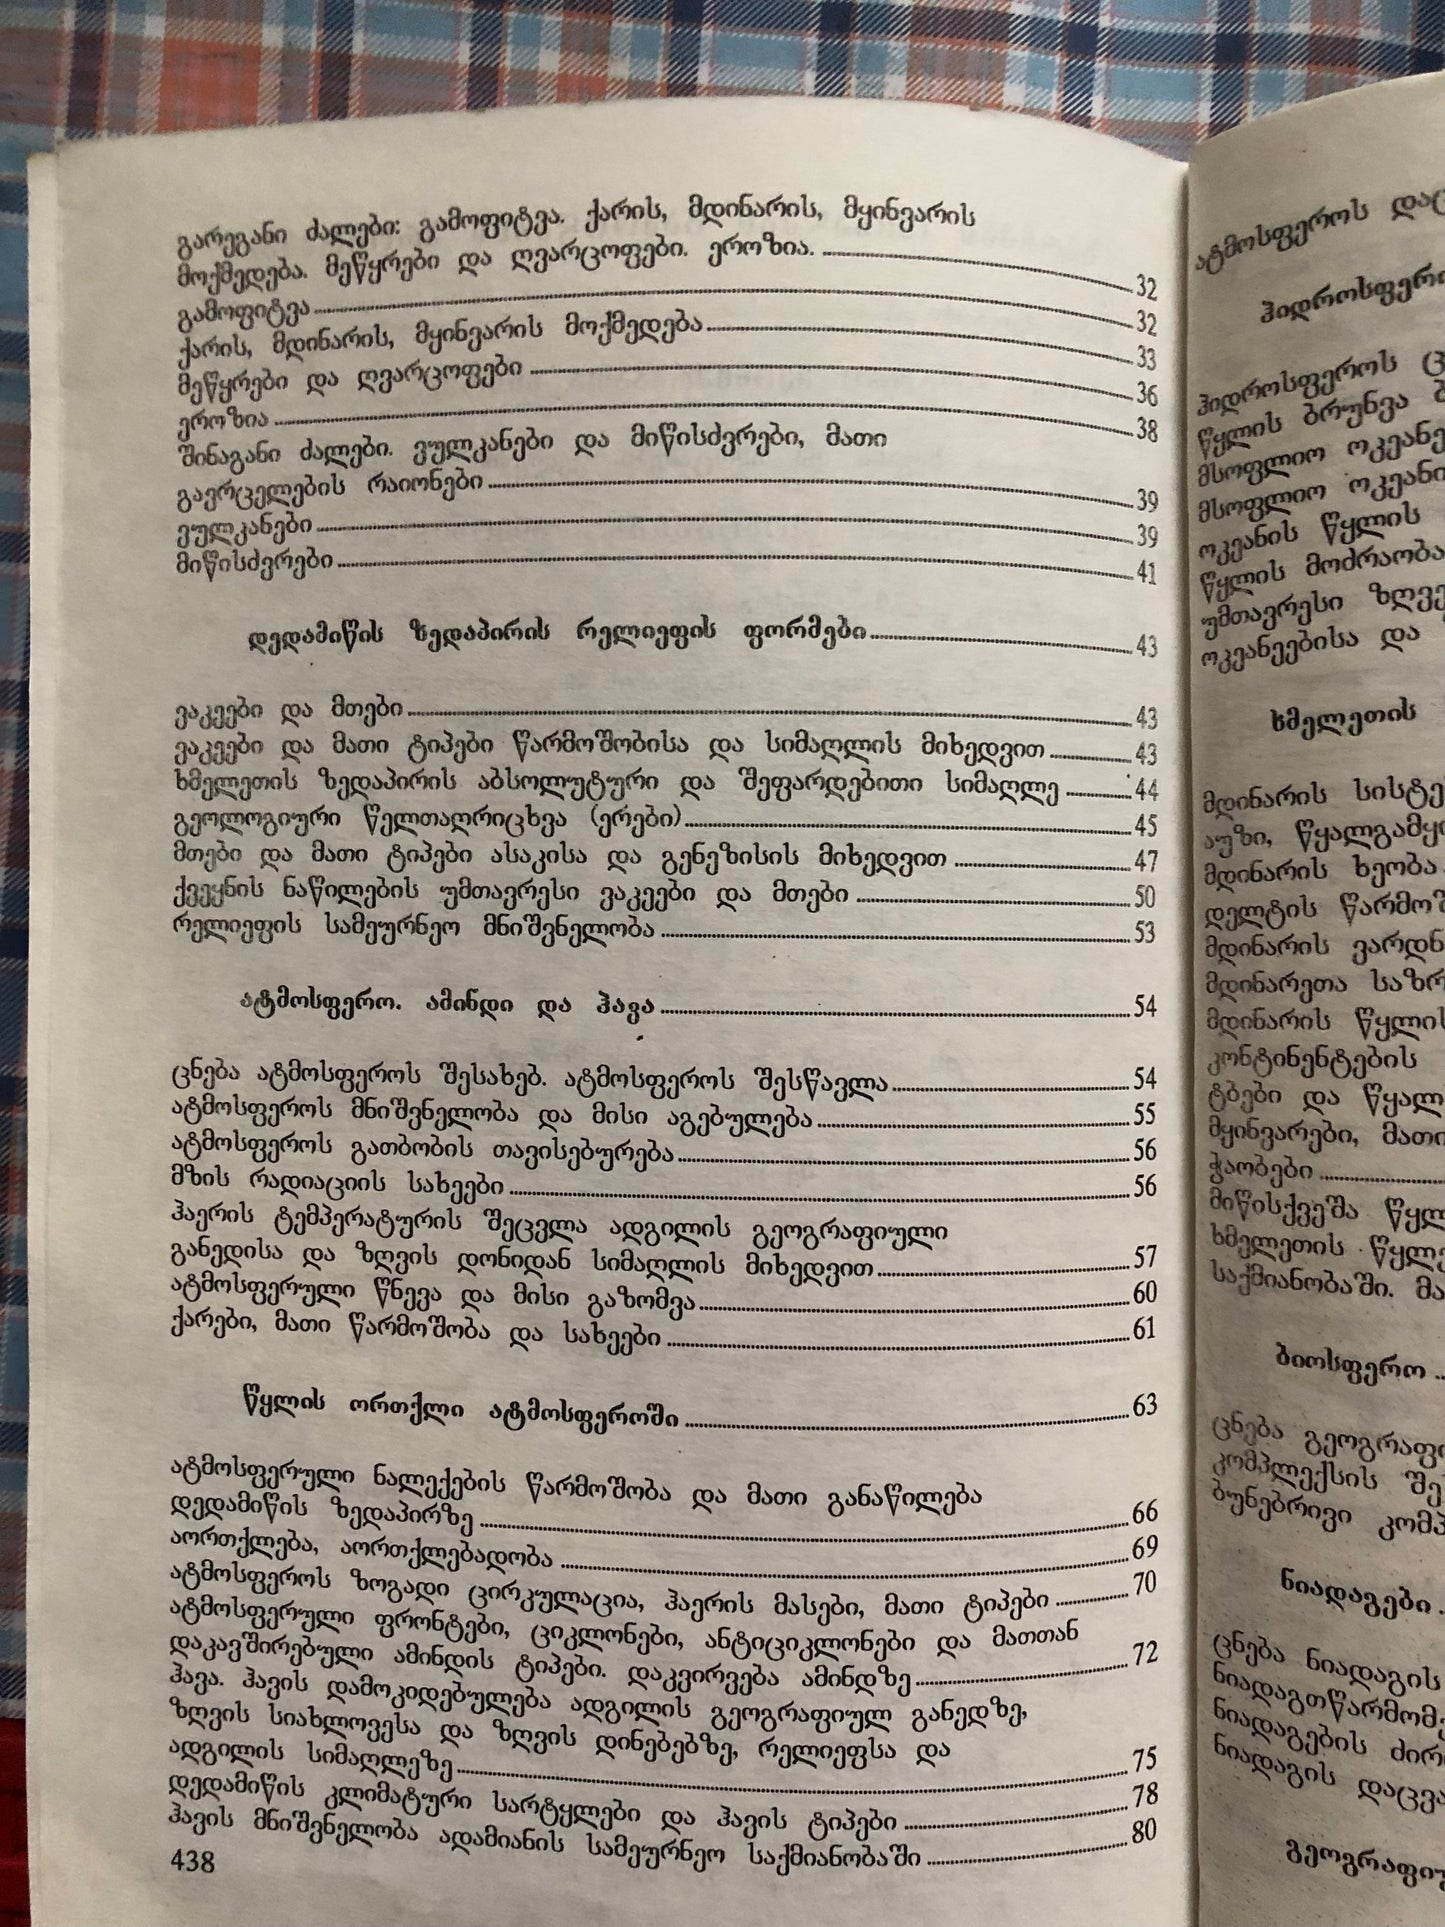 გარეგანი ძალები: გამოფიტვა. ქარის, მდინარის, მყინვარის
მოქმედება. მეწყრები და ღვარცოფები. ეროზია. 32
გამოფიტვა 32
ქარის, მდინარის, მყინვარის მოქმედება 33
მეწყრები და ღვარცოფები 36
ეროზია 38
შინაგანი ძალები. ვულკანები და მიწისძვრები, მათი
გავრცელების რაიონები 39
ვულკანები 39
მიწისძვრები 41
დედამიწის ზედაპირის რელიეფის ფორმები 43
ვაკეები და მთები 43
ვაკეები და მათი ტიპები წარმოშობისა და სიმაღლის მიხედვით 43
ხმელეთის ზედაპირის აბსოლუტური და შეფარდებითი სიმაღლე 44
გეოლოგიური წელთაღრიცხვა (ერები) 45
მთები და მათი ტიპები ასაკისა და გენეზისის მიხედვით 47
ქვეყნის ნაწილების უმთავრესი ვაკეები და მთები 50
რელიეფის სამეურნეო მნიშვნელობა 53
ატმოსფერო. ამინდი და ჰავა 54
ცნება ატმოსფეროს შესახებ. ატმოსფეროს შესწავლა 54
ატმოსფეროს მნიშვნელობა და მისი აგებულება 55
ატმოსფეროს გათბობის თავისებურება 56
მზის რადიაციის სახეები 56
ჰაერის ტემპერატურის შეცვლა ადგილის გეოგრაფიული
განედისა და ზღვის დონიდან სიმაღლის მიხედვით 57
ატმოსფერული წნევა და მისი გაზომვა 60
ქარები, მათი წარმოშობა და სახეები 61
წყლის ორთქლი ატმოსფეროში 63
ატმოსფერული ნალექების წარმოშობა და მათი განაწილება
დედამიწის ზედაპირზე 66
აორთქლება, აორთქლებადობა 69
ატმოსფეროს ზოგადი ცირკულაცია, ჰაერის მასები, მათი ტიპები 70
ატმოსფერული ფრონტები, ციკლონები, ანტიციკლონები და მათთან
დაკავშირებული ამინდის ტიპები. დაკვირვება ამინდზე 72
ჰავა. ჰავის დამოკიდებულება ადგილის გეოგრაფიულ განედზე,
ზღვის სიახლოვესა და ზღვის დინებებზე, რელიეფსა და
ადგილის სიმაღლეზე 75
დედამიწის კლიმატური სარტყლები და ჰავის ტიპები 78
ჰავის მნიშვნელობა ადამიანის სამეურნეო საქმიანობაში 80
438
ატმოსფეროს
ჰიდროსფეროს
წყლის ბრუნვა
მსოფლიო
მსოფლიო
ოკეანის წყლის
წყლის მოძრაობა
უმთავრესი
ოკეანეებისა და
ხმელეთის
მდინარის
აუზი,
მდინარის ხეობა
დელტის
მდინარის
მდინარეთა
მდინარის
კონტინენტების
ტბები და
მყინვარები, მათი
ჭაობები
მიწისქვეშა
ხმელეთის
საქმიანობაში.
ბიოსფერო
ცნება
კომპლექსის
ბუნებრივი
ნიადაგები
ცნება ნიადაგის
ნიადაგების
ნიადაგის დაცვა